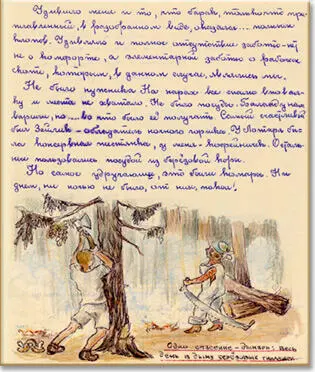 Удивило меня и то, что барак, только что при-
плавленный в разобранном виде, оказался... полным
клопов. Удивляло и полное отсутствие заботы - ну
не о комфорте, а элементарной заботы о рабочем
скоте, которым, в данном случае, являлись мы.
Не было нужника. На нарах все спало впова-
лку и места не хватало. Не было посуды. Баланду нам
варили, но... во что было её получать? Самый счастливый
был Зейлик - обладатель ночного горшка. У Лотаря бы-
ла консервная жестянка, у меня - кофейничек. Осталь-
ные пользовались посудой из берёзовой коры.
Но самое удручающее, это были комары. Ни
днём, ни ночью не было, от них, покоя!
Одно спасение - дымари: весь
день в дыму